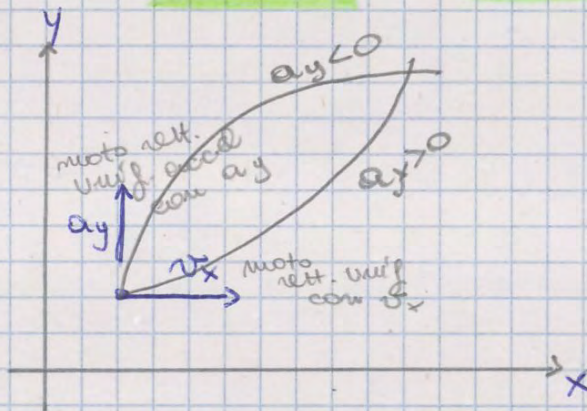 y
ay<0
moto rett.
unif. accel
con ay
ay>0
ay
vx
moto
rett. unif
con vx
x